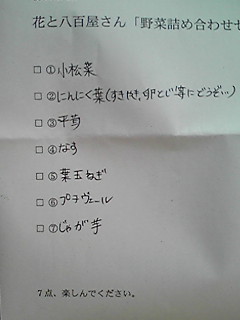 花と八百屋さん「野菜詰め合わせセ
□ ①小松菜
□ ②にんにく葉(すきやき、卵とじ等にどうぞ…)
□ ③平茸
□ ④なす
□ ⑤葉玉ねぎ
□ ⑥プチヴェール
□ ⑦じゃが芋
7点、楽しんでください。